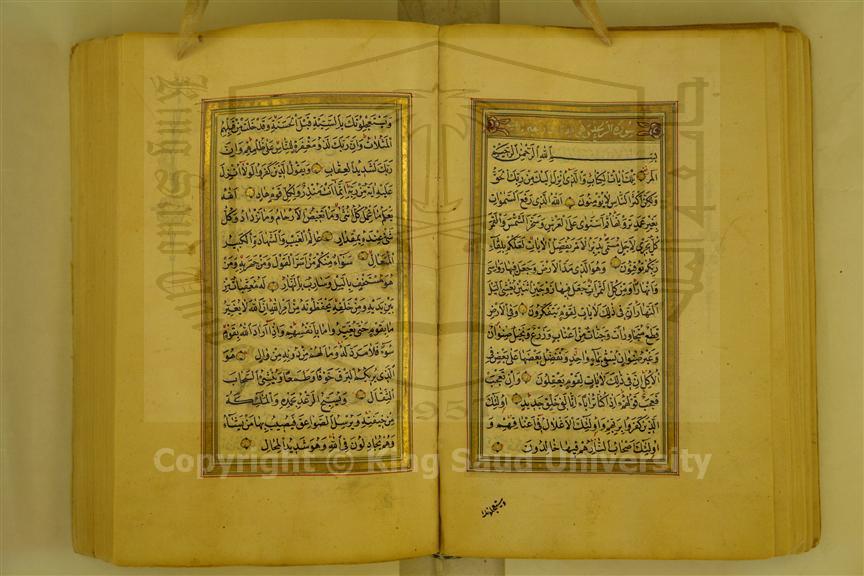 سورة الرعد
بسم الله الرحمن الرحيم
المر تلك ايات الكتاب والذي انزل اليك من ربك الحق
ولكن اكثر الناس لا يؤمنون الله الذي رفع السموات
بغير عمد ترونها ثم استوى على العرش وسخر الشمس والقمر
كل يجري لاجل مسمى يدبر الامر يفصل الايات لعلكم بلقاء
ربكم توقنون وهو الذي مد الارض وجعل فيها رواسي
وانهارا ومن كل الثمرات جعل فيها زوجين اثنين يغشي الليل
النهار ان في ذلك لايات لقوم يتفكرون وفي الارض
قطع متجاورات وجنات من اعناب وزرع ونخيل صنوان
وغير صنوان يسقى بماء واحد ونفضل بعضها على بعض في
الاكل ان في ذلك لايات لقوم يعقلون وان تعجب
فعجب قولهم ءاذا كنا ترابا ءانا لفي خلق جديد اولئك
الذين كفروا بربهم واولئك الاغلال في اعناقهم و
اولئك اصحاب النار هم فيها خالدون
ويستعجلونك
ويستعجلونك بالسيئة قبل الحسنة وقد خلت من قبلهم
المثلات وان ربك لذو مغفرة للناس على ظلمهم وان
ربك لشديد العقاب ويقول الذين كفروا لولا انزل
عليه اية من ربه انما انت منذر ولكل قوم هاد الله
يعلم ما تحمل كل انثى وما تغيض الارحام وما تزداد وكل
شيء عنده بمقدار عالم الغيب والشهادة الكبير
المتعال سواء منكم من اسر القول ومن جهر به ومن
هو مستخف بالليل وسارب بالنهار له معقبات من
بين يديه ومن خلفه يحفظونه من امر الله ان الله لا يغير
ما بقوم حتى يغيروا ما بانفسهم واذا اراد الله بقوم
سوءا فلا مرد له وما لهم من دونه من وال هو
الذي يريكم البرق خوفا وطمعا وينشئ السحاب
الثقال ويسبح الرعد بحمده والملئكة
من خيفته ويرسل الصواعق فيصيب بها من يشاء
وهم يجادلون في الله وهو شديد المحال
Copyright © King Saud University
King Saud University
1957